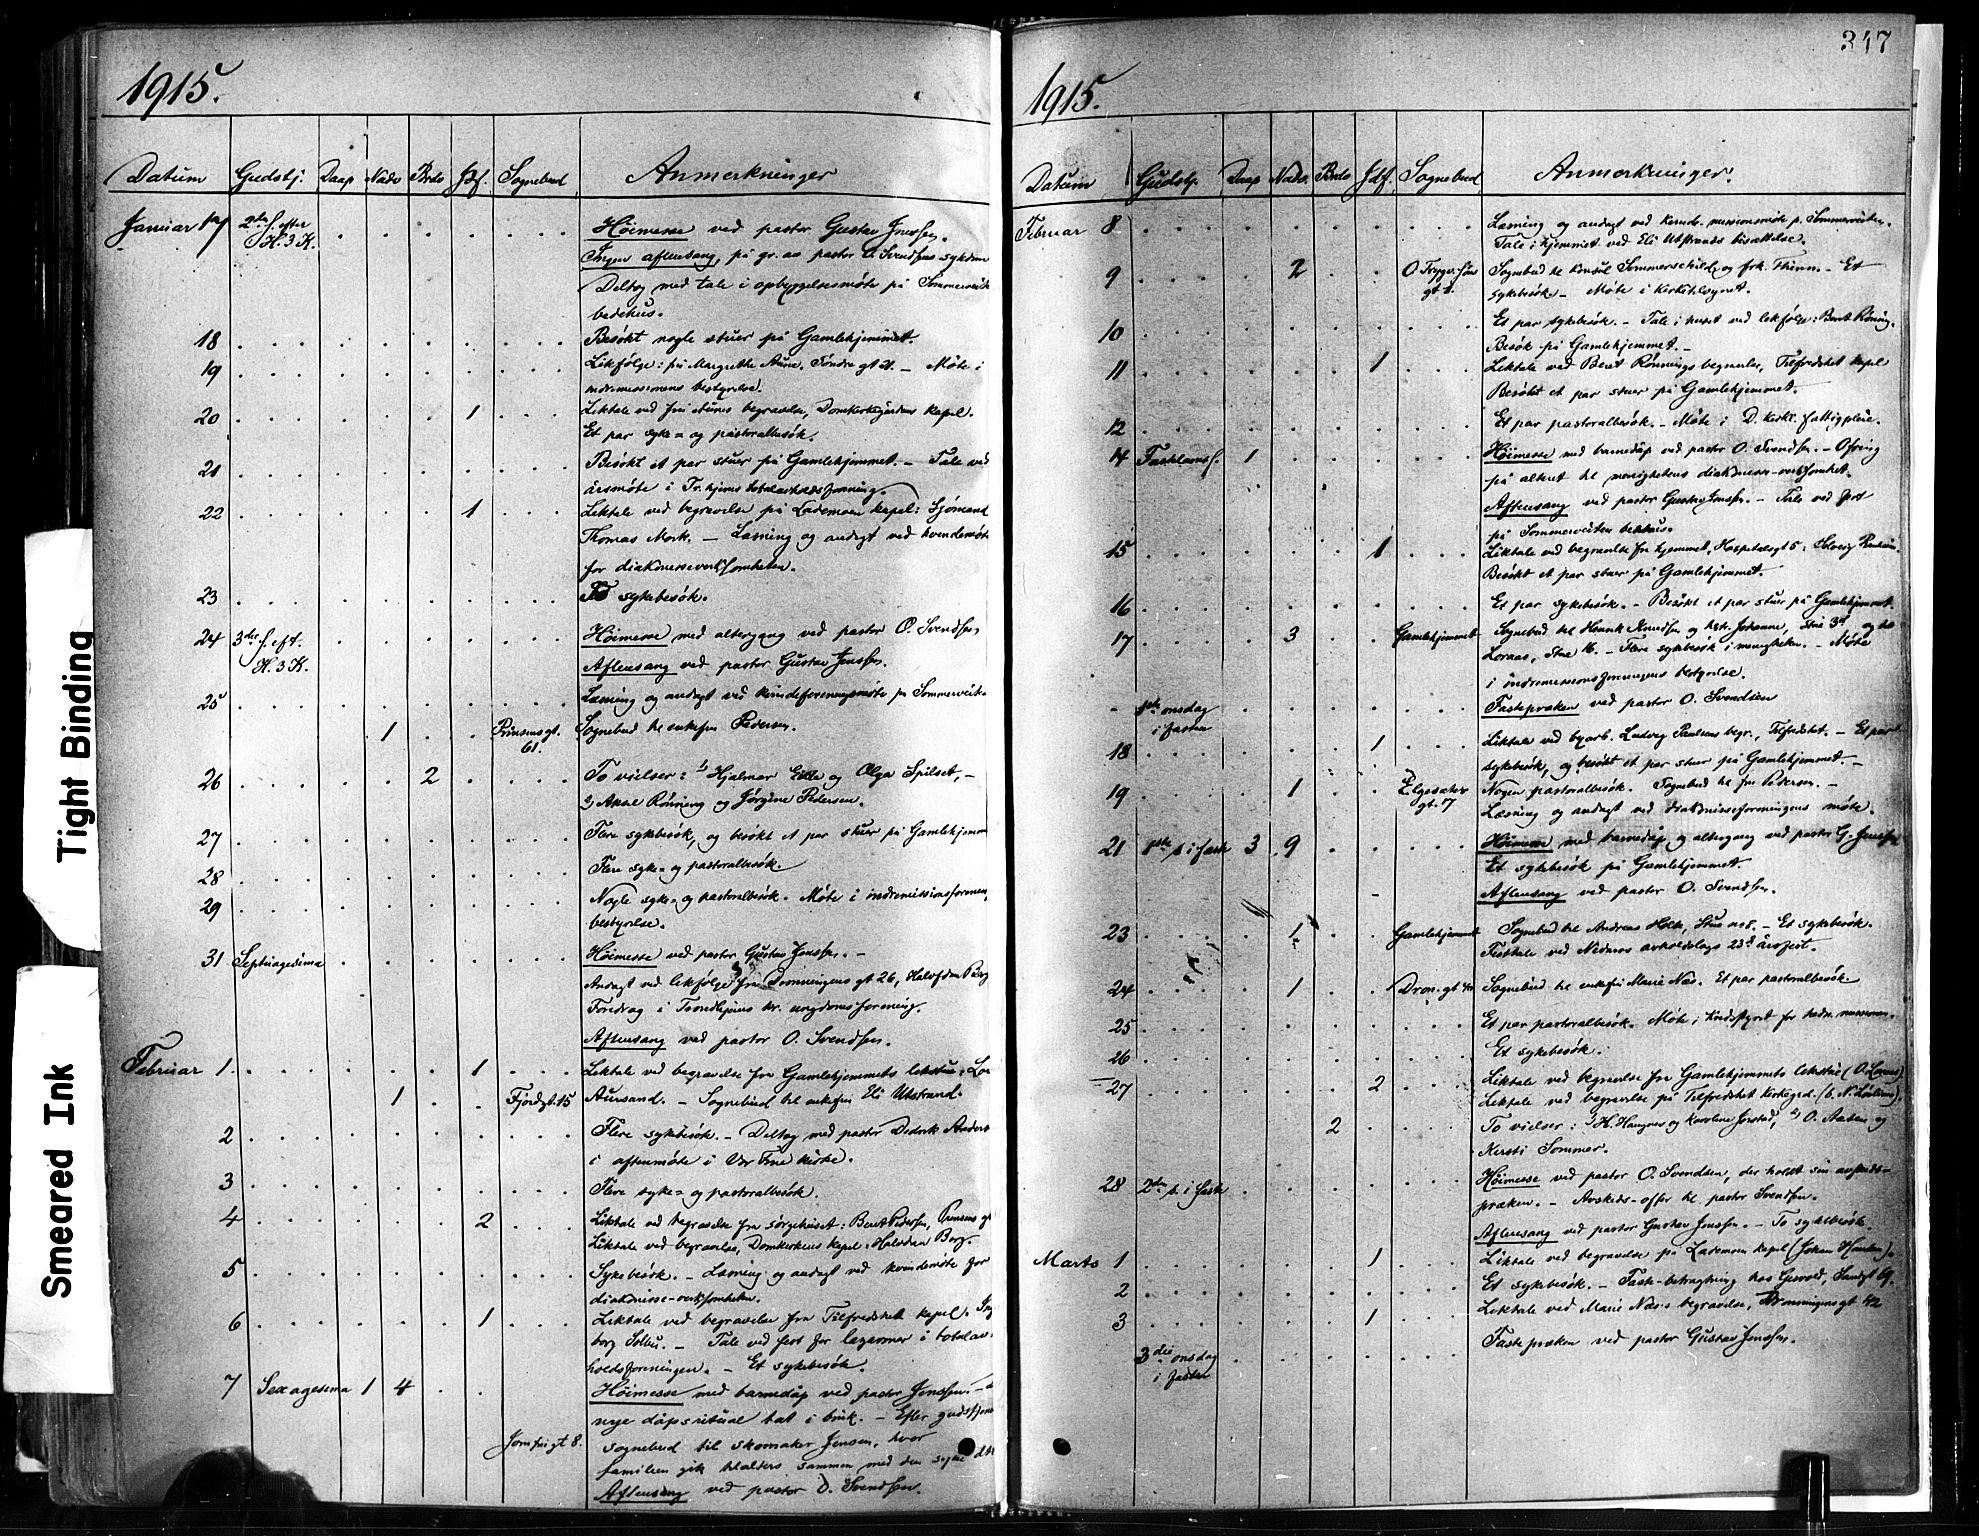 1915.
Datum Gudstj. Daap Nadv Brdv Jdf. Sognebud Anmerkninger
Januar 17 2den s. efter Høimesse ved pastor Gustav Jenssen.
H. 3 K. Ingen aftensang, på gr. av pastor O. Svendsens sykdom
Deltog med tale i opbyggelsesmøte på Sommerveit.
bedehus.
18 Besøkt nogle stuer på Gamlehjemmet.
19 Likfølge: fru Margrethe Aune, Søndre gt 21. — Møte i
indremissionens bestyrelse.
20 1 Liktale ved fru Aunes begravelse, Domkirkegårdens kapel.
Et par syke- og pastoralbesøk.
21 Besøkt et par stuer på Gamlehjemmet. — Tale ved
årsmøte i Tr.hjems totalavholdsforening.
22 1 Liktale ved begravelse på Lademoen kapel: Sjømand
Thomas Mork. — Læsning og andagt ved kvindemøte
for diakonissevirksomheten.
23 To sykebesøk.
24 3die s. eft. Høimesse med altergang ved pastor O. Svendsen,
H. 3 K. Aftensang ved pastor Gustav Jenssen.
25 Læsning og andagt ved kvindeforeningsmøte på Sommerveit.
1 Prinsens gt. Sognebud til enkefru Pedersen.
61.
26 2 To vielser: 1) Hjalmar og Olga Spilset, —
2) Aksel Rønning og Jørgine Pedersen.
27 Flere sykebesøk, og besøkt et par stuer på Gamlehjemm
28 Flere syke- og pastoralbesøk.
29 Nogle syke- og pastoralbesøk. Møte i indremissionsforenin
bestyrelse.
31 Septuagesima Høimesse ved pastor Gustav Jenssen. —
Andagt ved likfølge fra Dronningens gt 26, Halvdan Borg
Foredrag i Trondhjems kr. ungdomsforening.
Aftensang ved pastor O. Svendsen.
Februar 1 1 Liktale ved begravelse fra Gamlehjemmets likstue:
1 Fjordgt. 15 Aursand. — Sognebud til enkefru Eli Utstrand.
2 Flere sykebesøk. — Deltog med pastor Didrik Anders
i aftenmøte i Vor Frue kirke.
3 Flere syke- og pastoralbesøk.
4 2 Liktale ved begravelse fra sørgehuset: Beret Pedersen, Prinsens gt
Liktale ved begravelse, Domkirkens kapel: Halvdan Borg.
5 Sykebesøk. — Læsning og andagt ved kvindemøte for
diakonisse-virksomheten.
6 1 Liktale ved begravelse fra Tilfredshet kapel. Ing
borg Solli. — Tale ved fest for lazaroner i totalav-
holdsforeningen. — Et sykebesøk.
7 Sexagesima 1 4 Høimesse med barnedåp ved pastor Jenssen. —
nye dåpsritual tat i bruk. — Efter gudstjen
Jomfrugt 8. sognebud til skomaker Jensen, hvor
familien gik tilalters sammen med den syke
Aftensang ved pastor O. Svendsen.
347
1915.
Datum Gudstj. Daap Nadv. Brdv Jdf. Sognebud Anmerkninger.
Februar 8 Læsning og andagt ved kvinde-missionsmøte på Sommerveiten.
Tale i hjemmet ved Eli Utstrands bisættelse.
9 2 Sognebud til konsul Sommerschild og frk. Thinn. — Et
gt 1. sykebesøk — Møte i kirketilsynet.
10 Et par sykebesøk. — Tale i huset ved likfølge: Beret Rønning.
Besøk på Gamlehjemmet. —
11 1 Liktale ved Beret Rønnings begravelse, Tilfredshet kapel
Besøkt et par stuer på Gamlehjemmet.
12 Et par pastoralbesøk. — Møte i D. kirkl. fattigpleie.
14 Fastelavns s. 1 Høimesse med barnedåp ved pastor O. Svendsen. — Ofring
på alteret til menighetens diakonisse-virksomhet.
Aftensang ved pastor Gustav Jenssen. — Tale ved fest
på Sommerveiten bedehus.
15 1 Liktale ved begravelse fra hjemmet, Hospitalsgt 5: Solveig
Besøkt et par stuer på Gamlehjemmet.
16 Et par sykebesøk. — Besøkt et par stuer på Gamlehjemmet.
17 3 Gamlehjemmet Sognebud til Henrik Knudsen og hst. Johanne, Stue 39 og til
Loraas, Stue 16. — Flere sykebesøk i menigheten. — Møte
i indremissionsforeningens bestyrelse.
1ste onsdag Fastepræken ved pastor O. Svendsen
i fasten
18 1 Liktale ved byarb. Ludvig Paulsens begr., Tilfredshet. — Et par
sykebesøk, og besøkt et par stuer på Gamlehjemmet. —
19 1 Elgesæter Nogen pastoralbesøk. Sognebud til fru Pedersen. —
gt. 17 Læsning og andagt ved diakonisseforeningens møte.
21 1ste s. i fast 3 9 Høimesse med barnedåp og altergang ved pastor G. Jenssen
Et sykebesøk på Gamlehjemmet.
Aftensang ved pastor O. Svendsen.
23 1 Gamlehjemmet Sognebud til Andreas Holte, Stue no 8. — Et sykebesøk.
Festtale ved Nidaros avholdslags 23de årsfest.
24 1 Dron. gt 42 Sognebud til enkefru Marie Næs. Et par pastoralbesøk.
25 Et par pastoralbesøk. Møte i kredsstyret for indre missionen.
26 Et sykebesøk.
27 2 Liktale ved begravelse fra Gamlehjemmets likstue (O. Loraas)
Liktale ved begravelse på Tilfredshet kirkegrd.
2 To vielser: 1) H. Haugnes og Karoline Jørstad, 2) O. Aasen og
Kirsti Sommer.
28 2den s. i fast Høimesse ved pastor O. Svendsen, der holdt sin avskeds-
præken. — Avskeds-offer til pastor Svendsen.
Aftensang ved pastor Gustav Jenssen. — To sykebesøk.
Marts 1 1 Liktale ved begravelse på Lademoen kapel (Johan Hansen).
2 Et sykebesøk. — Faste-betragtning hos Gjervold, Sandgt 69.
3 1 Liktale ved Marie Næs's begravelse, Dronningens gt 42
Fastepræken ved pastor Gustav Jenssen.
3die onsdag
i fasten
Tight Binding
Smeared Ink